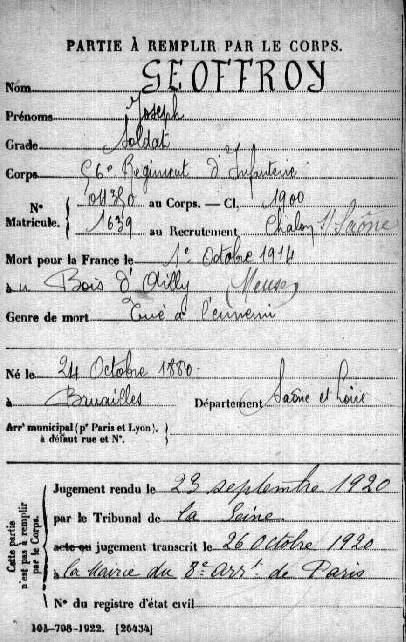 PARTIE À REMPLIR PAR LE CORPS.
Nom GEOFFROY
Prénoms Joseph
Grade Soldat
Corps 56e Régiment d'Infanterie
N° Matricule. 01380 au Corps. — Cl. 1900
1639 au Recrutement Chalon s/ Saône
Mort pour la France le 1er Octobre 1914
à u Bois d'Ailly (Meuse)
Genre de mort Tué à l'ennemi
Né le 24 Octobre 1880
à Bruailles Département Saône et Loire
Arrt municipal (pr Paris et Lyon),
à défaut rue et N°.
Cette partie n'est pas à remplir par le Corps.
Jugement rendu le 23 septembre 1920
par le Tribunal de la Seine
acte ou jugement transcrit le 26 octobre 1920
la Mairie du 8e arrt de Paris
N° du registre d'état civil
101-708-1922. [26434]